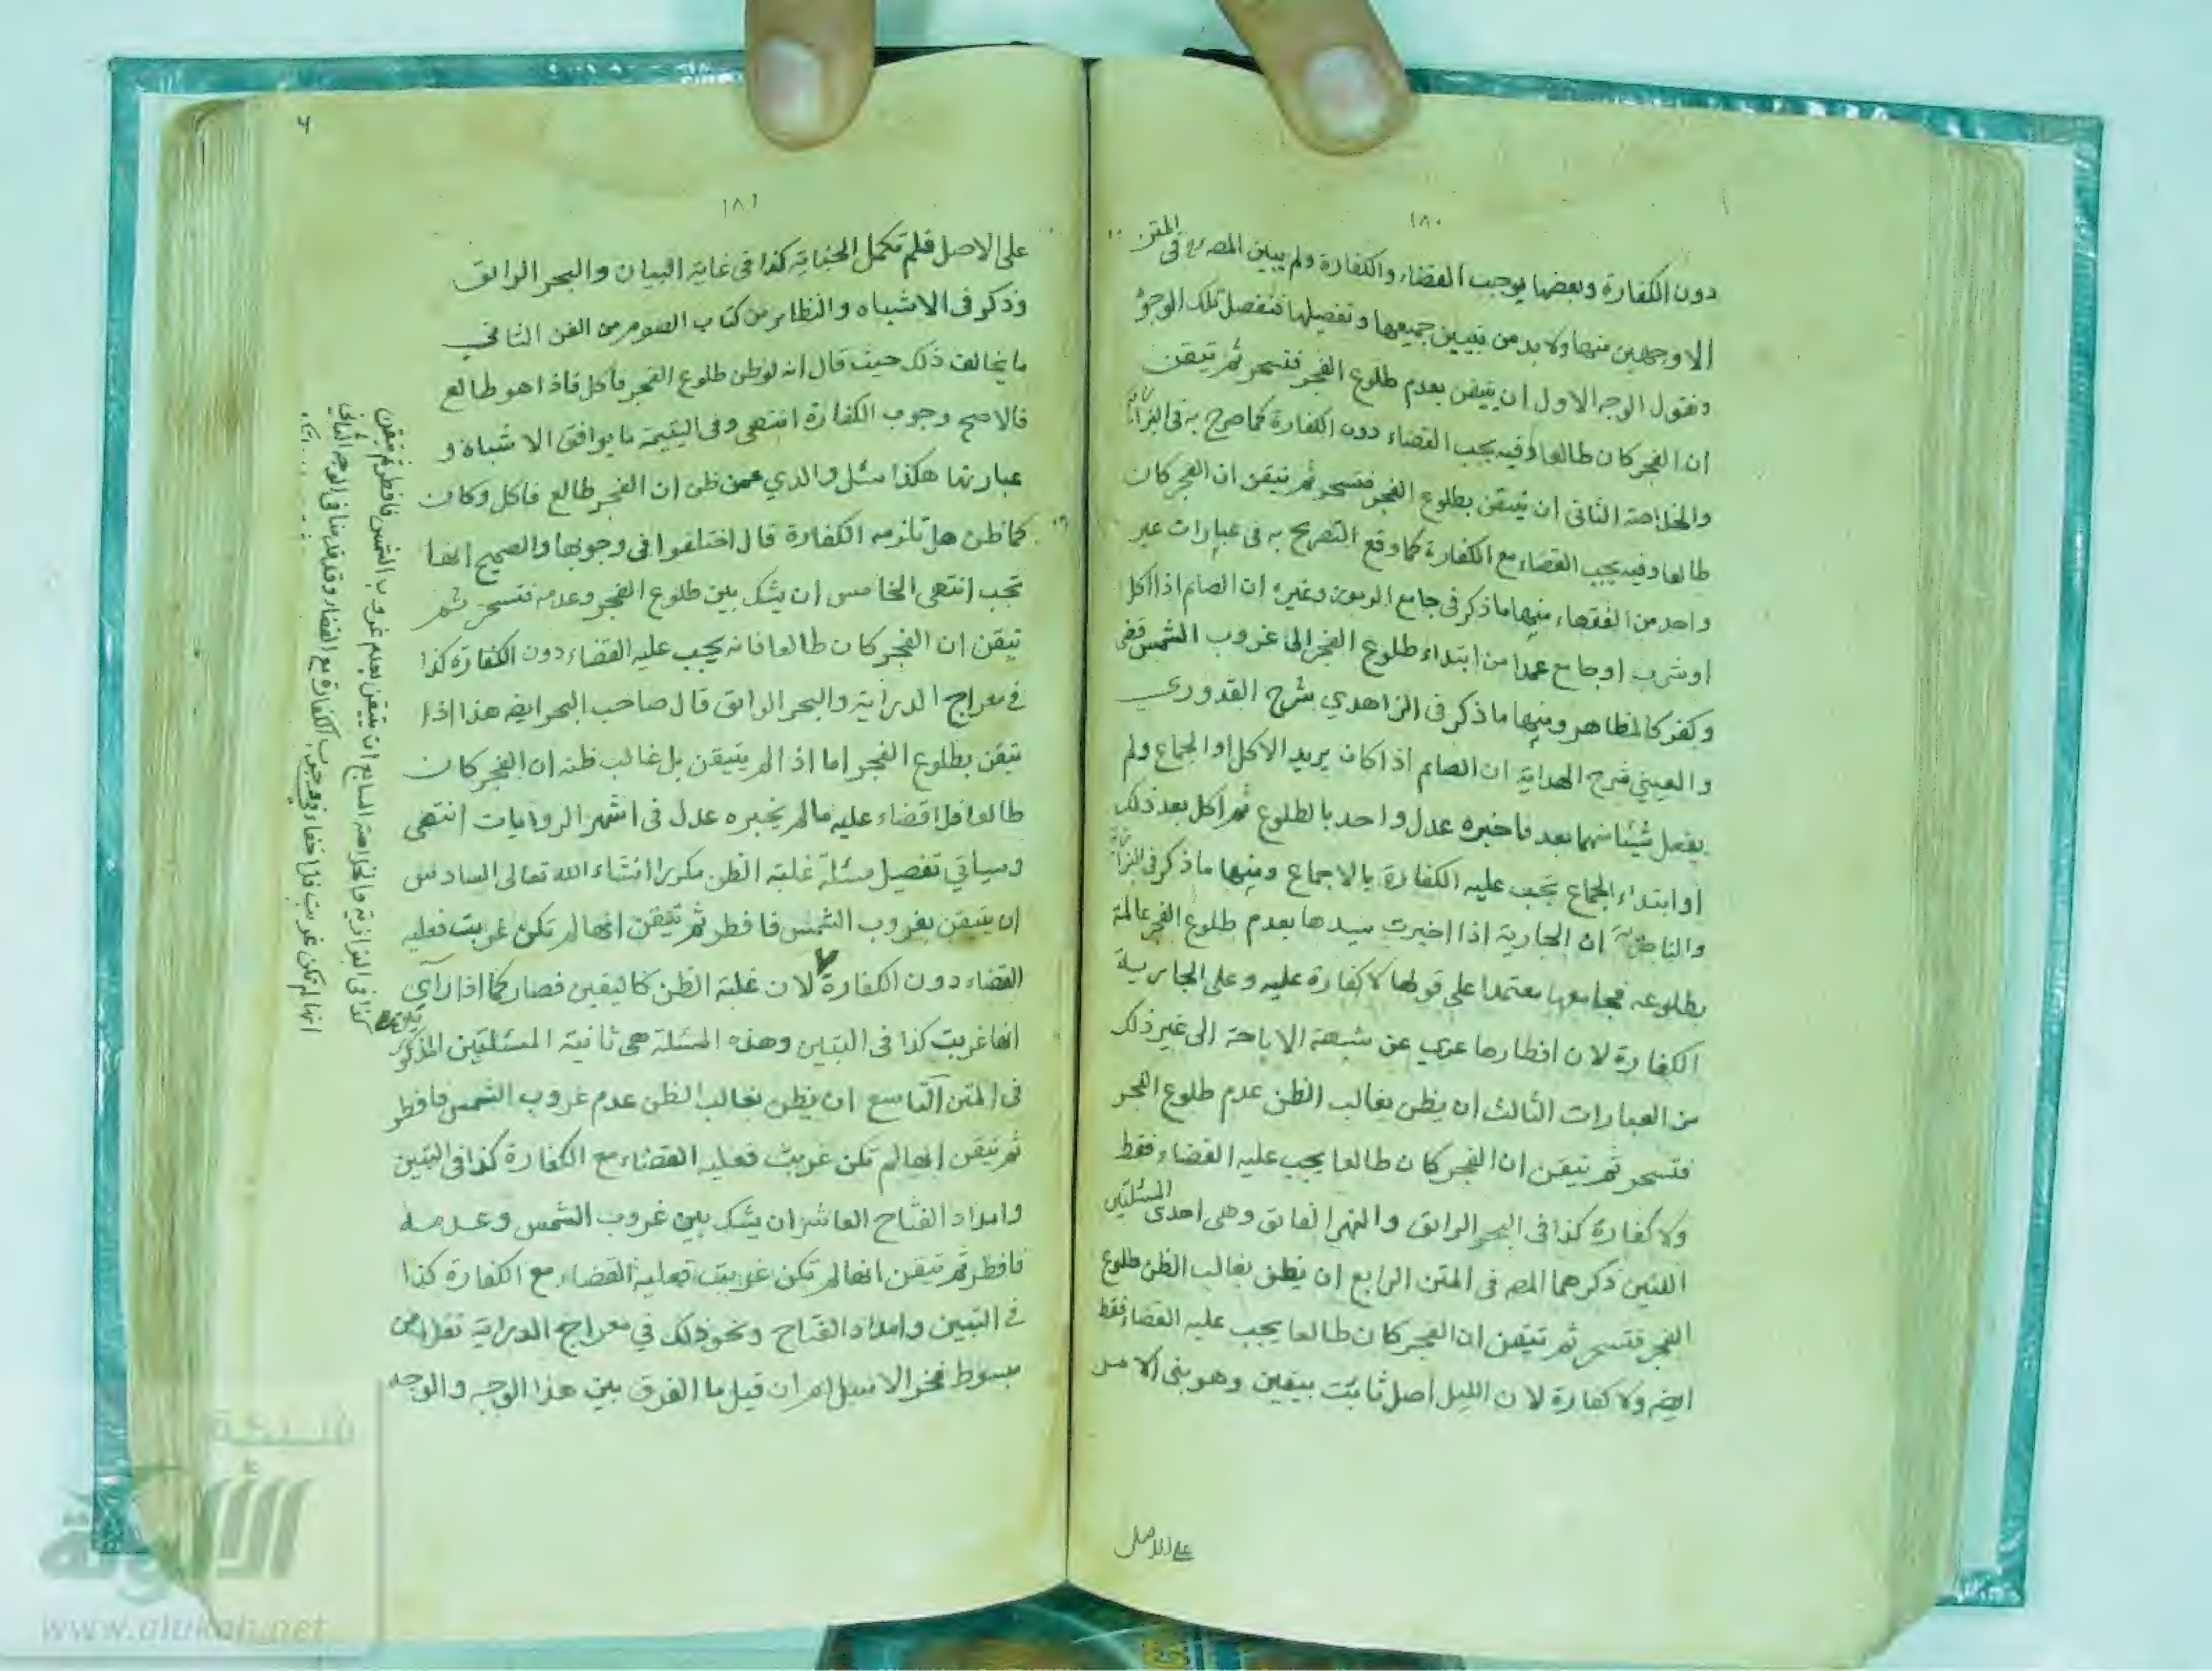 ١٨٠
دون الكفارة وبعضها يوجب القضاء والكفارة ولم يبين المصـ فى المتن
الا وجهين منها ولا بد من تبيين جميعها وتفصيلها فنفصل تلك الوجوه
ونقول الوجه الاول ان يتيقن بعدم طلوع الفجر فتسحر ثم تيقن
ان الفجر كان طالعا وفيه يجب القضاء دون الكفارة كما صرح به فى البزازية
والخلاصة الثانى ان يتيقن بطلوع الفجر فتسحر ثم تيقن ان الفجر كان
طالعا وفيه يجب القضاء مع الكفارة كما وقع التصريح به فى عبارات غير
واحد من الفقهاء منها ما ذكر فى جامع الرموز وغيره ان الصائم اذا اكل
او شرب او جامع عمدا من ابتداء طلوع الفجر الى غروب الشمس قضى
وكفر كالمظاهر ومنها ما ذكر فى الزاهدي شرح القدوري
والعيني شرح الهداية ان الصائم اذا كان يريد الاكل او الجماع ولم
يفعل شيئا منهما بعد فاخبره عدل واحد بالطلوع ثم اكل بعد ذلك
او ابتداء الجماع تجب عليه الكفارة بالاجماع ومنها ما ذكر فى البزازية
ان الجارية اذا اخبرت سيدها بعدم طلوع الفجر عالمة
بطلوعه فجامعها معتمدا على قولها لا كفارة عليه وعلى الجارية
الكفارة لان افطارها عري عن شبهة الاباحة الى غير ذلك
من العبارات الثالث ان يظن بغالب الظن عدم طلوع الفجر
فتسحر ثم تيقن ان الفجر كان طالعا يجب عليه القضاء فقط
ولا كفارة كذا فى البحر الرائق والنهر الفائق وهى احدى المسئلتين
اللتين ذكرهما المصـ فى المتن الرابع ان يظن بغالب الظن طلوع
الفجر فتسحر ثم تيقن ان الفجر كان طالعا يجب عليه القضاء فقط
ايضـ ولا كفارة لان الليل اصل ثابت بيقين وهو بنى الامر
على الاصل
١٨١
على الاصل فلم تكمل الجناية كذا فى غاية البيان والبحر الرائق
وذكر فى الاشباه والنظائر من كتاب الصوم من الفن الثاني
ما يخالف ذلك حيث قال انه لو ظن طلوع الفجر فاكل فاذا هو طالع
فالاصح وجوب الكفارة انتهى وفى اليتيمة ما يوافق الاشباه و
عبارتها هكذا سئل والدي عمن ظن ان الفجر طالع فاكل وكان
كما ظن هل تلزمه الكفارة قال اختلفوا فى وجوبها والصحيح انها
تجب انتهى الخامس ان يشك بين طلوع الفجر وعدمه فتسحر ثم
تيقن ان الفجر كان طالعا فانه يجب عليه القضاء دون الكفارة كذا
في معراج الدراية والبحر الرائق قال صاحب البحر ايضـ هذا اذا
تيقن بطلوع الفجر اما اذا لم يتيقن بل غالب ظنه ان الفجر كان
طالعا فلا قضاء عليه ما لم يخبره عدل فى اشهر الروايات انتهى
وسياتي تفصيل مسئلة غلبة الظن مكررا انشاء الله تعالى السادس
ان يتيقن بغروب الشمس فافطر ثم تيقن انها لم تكن غربت فعليه
القضاء دون الكفارة لان غلبة الظن كاليقين فصار كما اذا راى
انها غربت كذا فى التبيين وهذه المسئلة هى ثانية المسئلتين المذكور
تين
فى المتن التاسع ان يظن بغالب الظن عدم غروب الشمس فافطر
ثم تيقن انها لم تكن غربت فعليه القضاء مع الكفارة كذا فى التبيين
وامداد الفتاح العاشر ان يشك بين غروب الشمس وعدمه
فافطر ثم تيقن انها لم تكن غربت فعليه القضاء مع الكفارة كذا
في التبيين وامداد الفتاح ونحو ذلك في معراج الدراية نقلا من
مبسوط فخر الاسلام ان قيل ما الفرق بين هذا الوجه والوجه
كذا فى البزازية والخلاصة السابع ان يتيقن بعدم غروب الشمس فافطر ثم تيقن
انها لم تكن غربت فلا خفاء فى وجوب الكفارة مع القضاء وقد قدمنا فى الوجه الثانى
شبكة
الألوكة
www.alukah.net